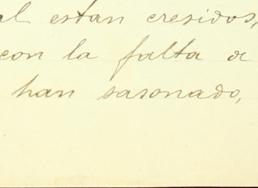 al estan cresidos,
con la falta a
han sasonado,